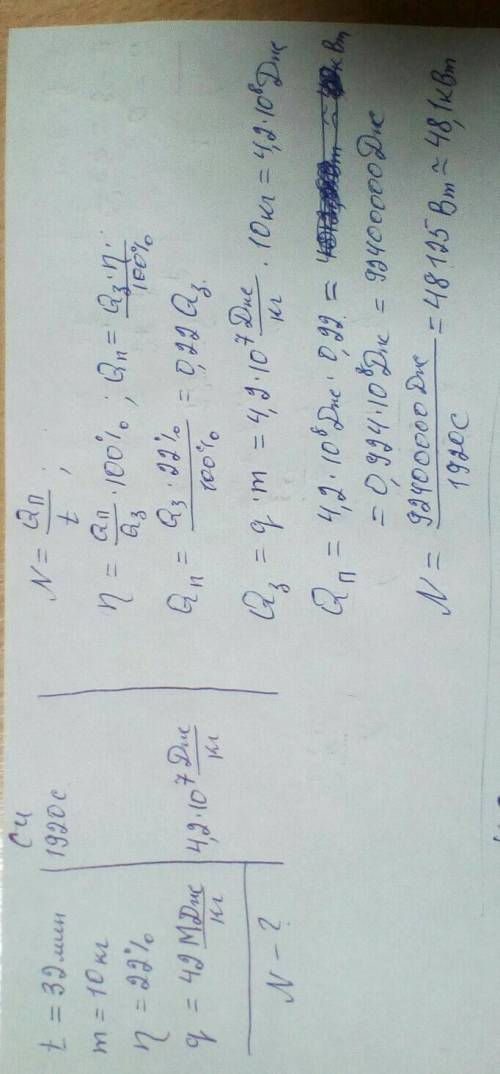 СИ
t = 32 мин 1920 с
m = 10 кг
η = 22%
q = 42 МДж/кг 4,2·10⁷ Дж/кг
N - ?
N = Qп/t ;
η = Qп/Qз · 100% ; Qп = Qз·η/100% ;
Qп = Qз·22%/100% = 0,22 Qз
Qз = q·m = 4,2·10⁷ Дж/кг · 10 кг = 4,2·10⁸ Дж
Qп = 4,2·10⁸ Дж · 0,22 =
= 0,924·10⁸ Дж = 92400000 Дж
N = 92400000 Дж/1920 с = 48125 Вт ≃ 48,1 кВт